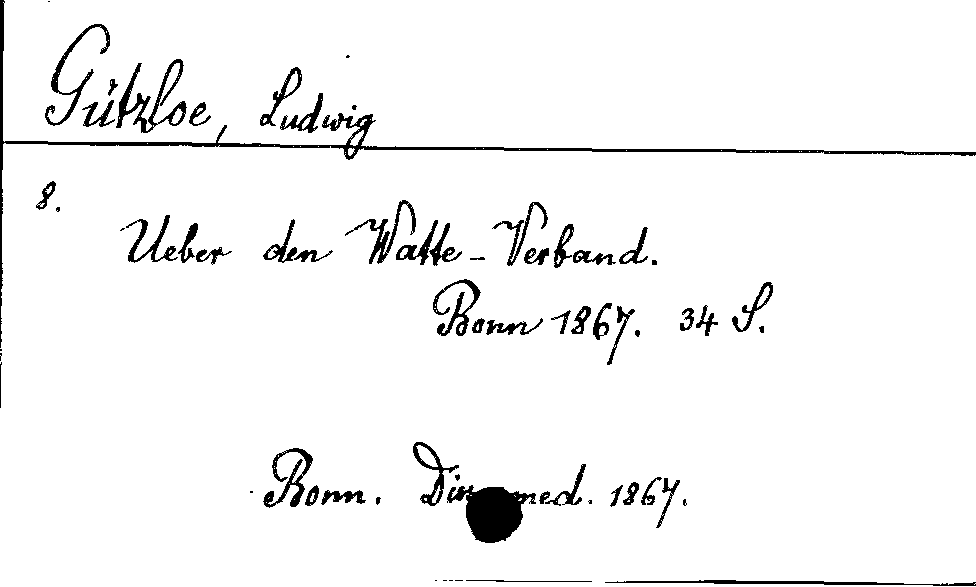 Gützloe, Ludwig
8.
Ueber den Watte-Verband.
Bonn 1867. 34 S.
Bonn. Diss. med. 1867.